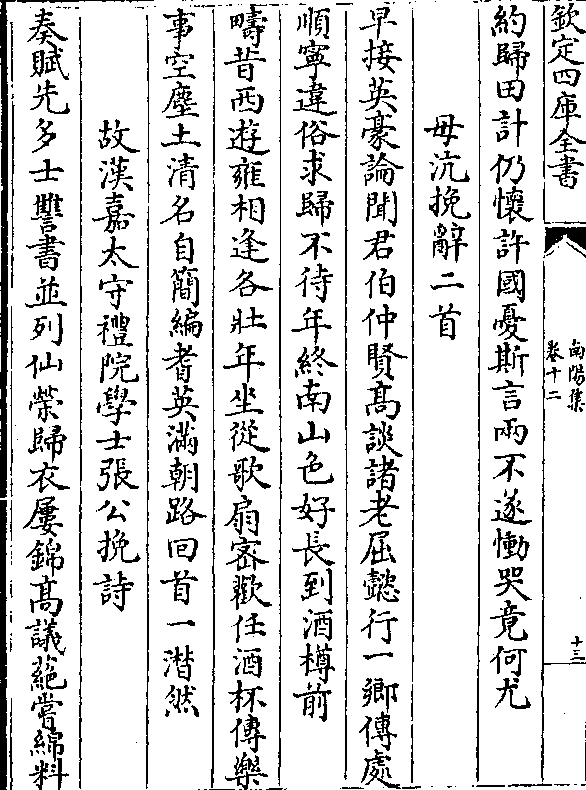 欽定四庫全書
南陽集
卷十二
十三
約歸田計仍懷許國憂斯言兩不遂慟哭竟何尤
毋沆挽辭二首
早接英豪論聞君伯仲賢髙談諸老屈懿行一鄉傳處
順寧違俗求歸不待年終南山色好長到酒樽前
疇昔西遊雍相逢各壯年坐從歌扇密歡任酒杯傳樂
事空塵土清名自簡編耆英滿朝路回首一潸然
故漢嘉太守禮院學士張公挽詩
奏賦先多士讐書並列仙榮歸衣屢錦髙議蕝嘗綿料